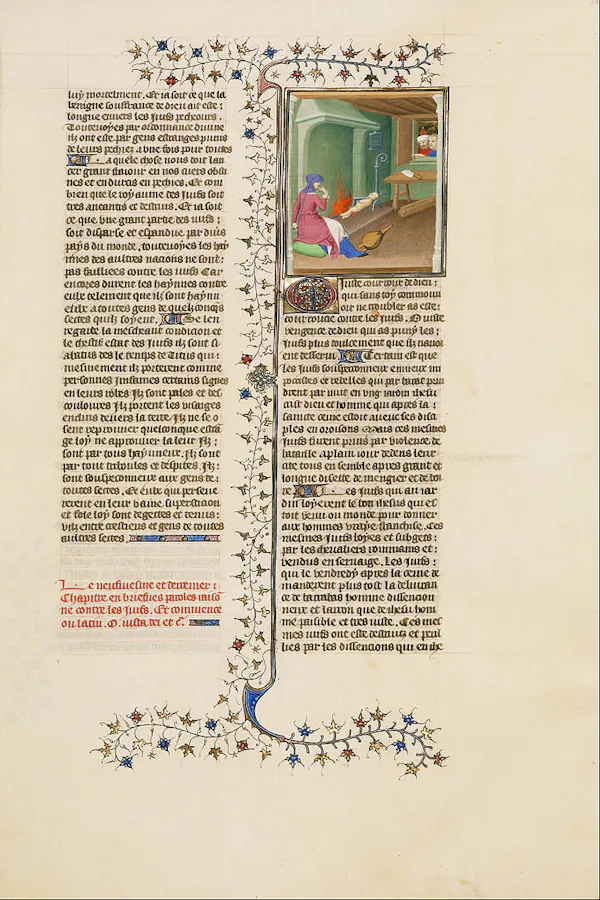 luy mortelment. Et ia soit ce que la
benigne souffrance de dieu ait este:
longue enuers les iuifs pecheurs.
Toutevoyes par ordonnance diuine
ilz ont este par gens estranges puniz
de leurs pechiez a une fois pour toutes
La quele chose nous doit lan
cer grant paour en nos cuers obsti
nes et endurcis en pechies. Et com
bien que le royaume des iuifs soit
tres aneantis et destruis. Et ia soit
ce que une grant partie des iuifs:
soit disparse et espandue par diuers
pays du monde, toutevoyes les hay
nes des aultres nacions ne sont:
pas faillies contre les iuifs Car
encores durent les haynnes contre
eulx tellement que ilz sont haynn
eux a toutes gens de quelconques
sectes quilz soyent. Se len
regarde la meschant condicion et
le chestif estat des iuifs ilz sont si
abatus des le temps de titus qui:
mesmement ilz portent comme
personnes infames certains signes
en leurs robes Ilz sont pales et des
coulourez Ilz portent les visages
enclins deuers la terre. Ilz ne so
sent reprouuer quelconque estran
ge loy ne approuuer la leur Ilz:
sont par tous haynneux. Ilz sont
par tout triboulez et despitez. Ilz:
sont souspeconneux aux gens de:
toutes sectes. Et ceulx qui perseue
rerent en leur vaine supersticion
et fole loy sont degettes et tenus:
vilz entre crestiens et gens de toutes
aultres sectes.
Le neufuiesme et derrenier:
Chapitre en briefues paroles raiso
ne contre les iuifs. Et commence
ou latin. O. iusta dei et cet.
O Iuste courroux de dieu:
qui sans toy commouuoir
ne troubler as este:
courrouce contre les iuifs. O iuste
vengence de dieu qui as puny les:
iuifs plus doulcement que ilz nauoi
ent desserui Certain est que
les iuifs souspeconneux ennieux im
pocrites et rebelles qui par tatat peu
drent par nuit en ung iardin ihesu
crist dieu et homme qui apres la:
saincte cene estoit auec ses disci
ples en oroisons Mais ces mesmes
iuifs furent prins par violence de
bataille a plain iour dedens leur
cite tous en semble apres grant et
longue disette de menger et de boi
re Les iuifs qui au iar
din loyerent le bon ihesus qui es
toit venu ou monde pour donner
aux hommes vraye franchise. Ces
mesmes iuifs loyes et subgets:
par les cheualiers rommains et:
vendus en seruaige. Les iuifs:
qui le vendredy apres la cene de
manderent plus tost la deliuran
ce de barrabas homme dissencion
neux et larron que de ihesu hom
me paisible et tres iuste. Ces mes
mes iuifs ont este destruiz et peril
liez par les dissencions qui en che